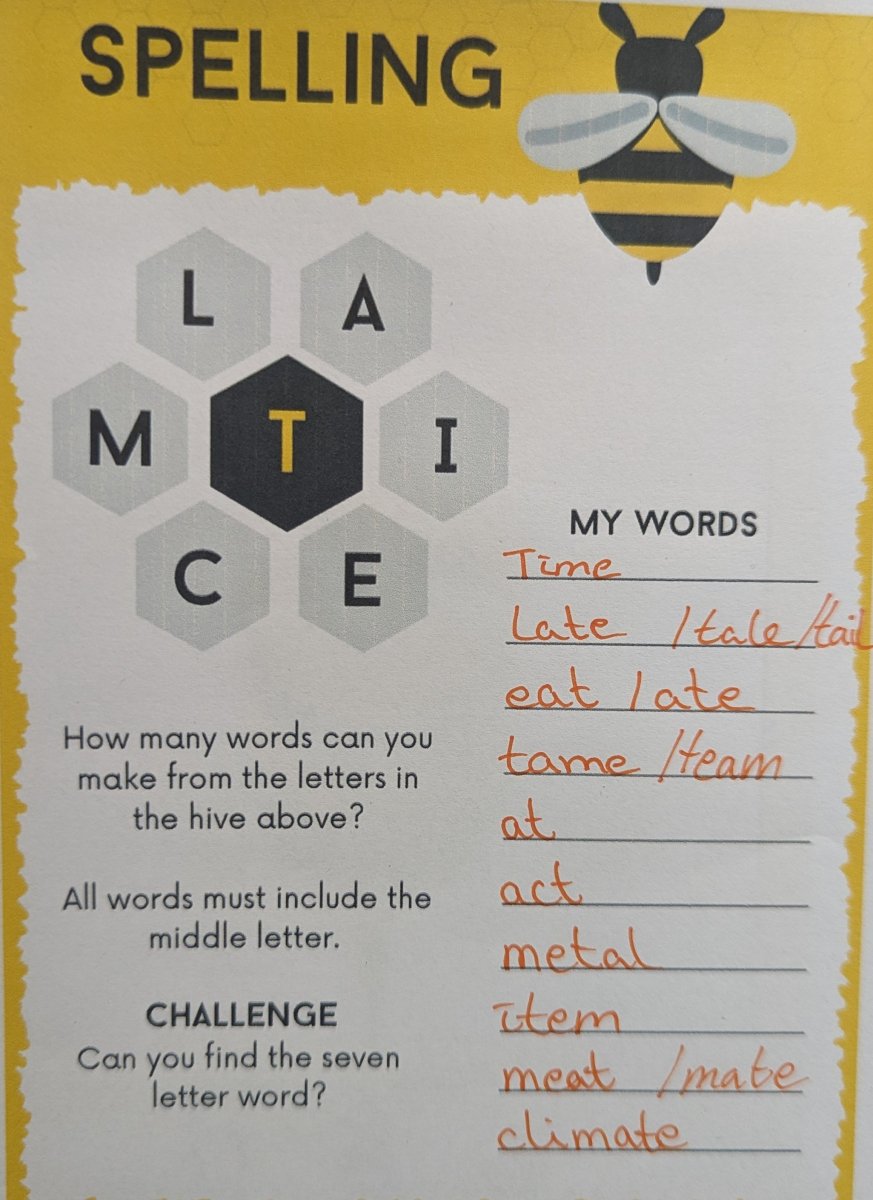 SPELLING
L A
M T I
C E
MY WORDS
Time
Late /tale/tail
eat /ate
tame /team
at
act
metal
item
meat /mate
climate
How many words can you
make from the letters in
the hive above?
All words must include the
middle letter.
CHALLENGE
Can you find the seven
letter word?